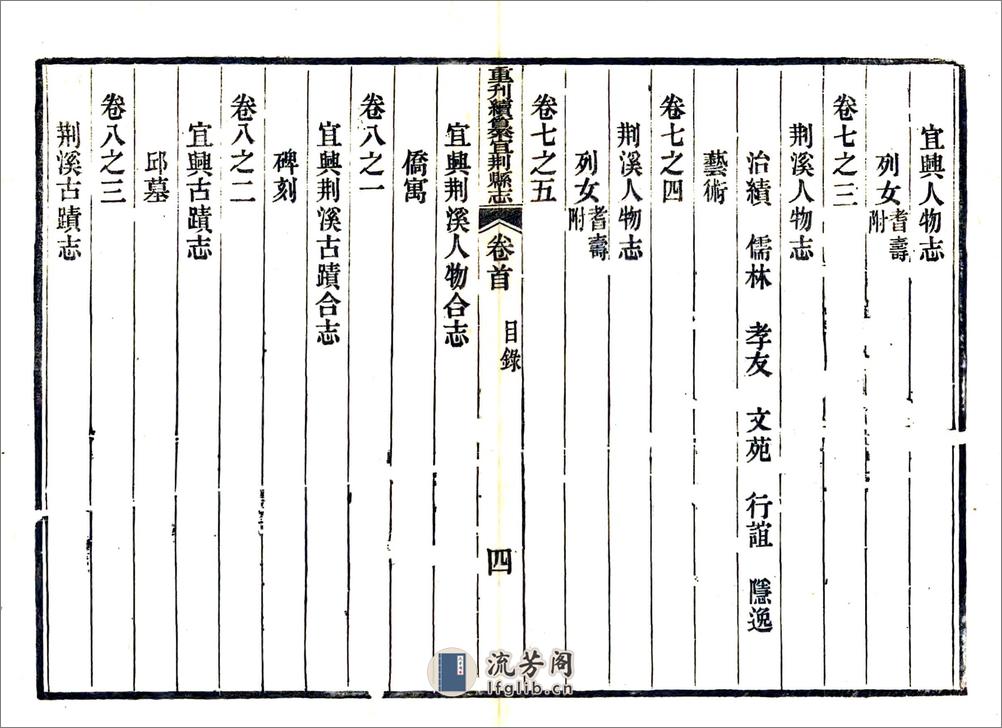 宜興人物志
列女耆壽附
卷七之三
荆溪人物志
治績 儒林 孝友 文苑 行誼 隱逸
藝術
卷七之四
荆溪人物志
列女耆壽附
卷七之五
重刊續纂宜荆縣志 卷首 目錄 四
宜興荆溪人物合志
僑寓
卷八之一
宜興荆溪古蹟合志
碑刻
卷八之二
宜興古蹟志
邱墓
卷八之三
荆溪古蹟志
流芳阁
lfglib.cn